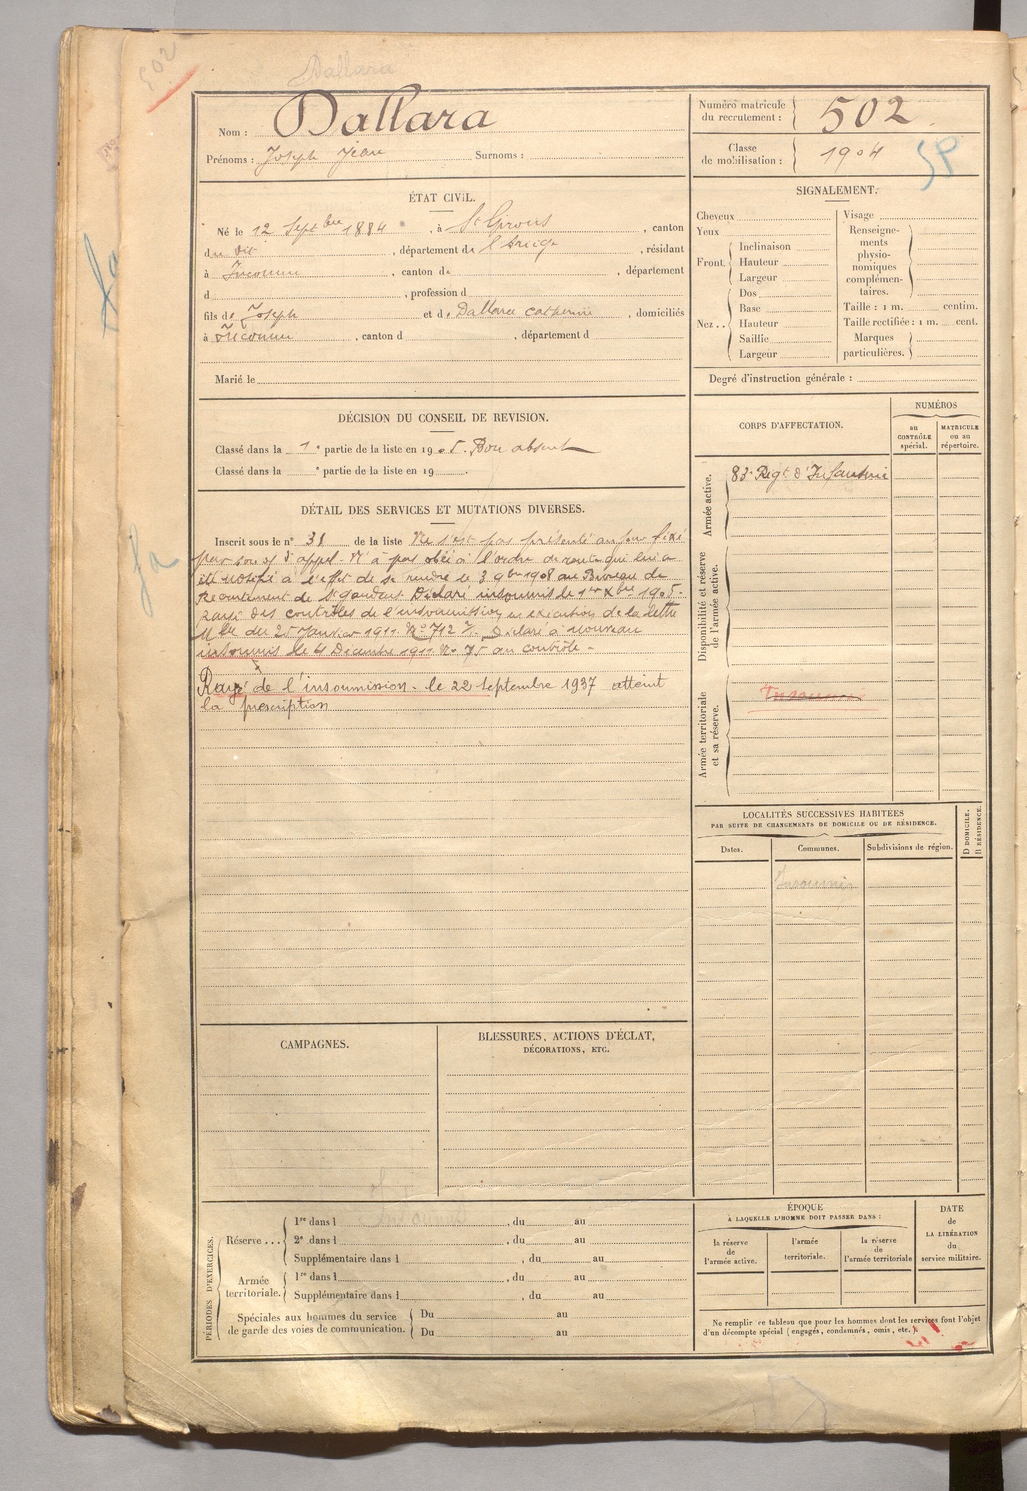 502
Dallara
Nom : Dallara
Prénoms : Joseph Jean Surnoms :
Numéro matricule du recrutement : 502
Classe de mobilisation : 1904
ÉTAT CIVIL.
Né le 12 Septbre 1884, à St Girons, canton
du dit, département de l'Ariège, résidant
à Inconnu, canton de , département
d , profession d
fils de Joseph et de Dallara Catherine, domiciliés
à Inconnu, canton d , département d
Marié le
SIGNALEMENT.
Cheveux
Yeux
Front. Inclinaison
Hauteur
Largeur
Nez.. Dos
Base
Hauteur
Saillie
Largeur
Visage
Renseigne-
ments
physio-
nomiques
complémen-
taires.
Taille : 1 m. centim.
Taille rectifiée : 1 m. cent.
Marques
particulières.
Degré d'instruction générale :
DÉCISION DU CONSEIL DE REVISION.
Classé dans la 1e partie de la liste en 1905. Bon absent
Classé dans la e partie de la liste en 19
DÉTAIL DES SERVICES ET MUTATIONS DIVERSES.
Inscrit sous le n° 38 de la liste Ne s'est pas présenté au jour fixé
par son d'appel. N'a pas obéi à l'ordre de route qui lui a
été notifié à l'effet de se rendre le 3 9bre 1908 au Bureau de
Recrutement de St Gaudens Déclaré insoumis le 1er Xbre 1905.
rayé des contrôles de l'insoumission en exécution de la lettre
Mlle du 25 Janvier 1911. No 712 Déclaré à nouveau
insoumis le 4 Décembre 1911. No 75 au contrôle.
Rayé de l'insoumission. le 22 Septembre 1937 atteint
la prescription
CORPS D'AFFECTATION.
NUMÉROS
au CONTRÔLE spécial.
MATRICULE ou au répertoire.
Armée active.
83e Regt d'Infanterie
Disponibilité et réserve de l'armée active.
Armée territoriale et sa réserve.
Insoumis
LOCALITÉS SUCCESSIVES HABITÉES
PAR SUITE DE CHANGEMENTS DE DOMICILE OU DE RÉSIDENCE.
Dates. Communes. Subdivisions de région. D DOMICILE. R RÉSIDENCE.
Insoumis
CAMPAGNES.
BLESSURES, ACTIONS D'ÉCLAT,
DÉCORATIONS, ETC.
PÉRIODES D'EXERCICES.
Réserve ... 1re dans l , du au
2e dans l , du au
Supplémentaire dans l , du au
Armée territoriale. 1re dans l , du au
Supplémentaire dans l , du au
Spéciales aux hommes du service
de garde des voies de communication. Du au
Du au
ÉPOQUE
À LAQUELLE L'HOMME DOIT PASSER DANS :
la réserve de l'armée active.
l'armée territoriale.
la réserve de l'armée territoriale
DATE
de
LA LIBÉRATION
du
service militaire.
Ne remplir ce tableau que pour les hommes dont les services font l'objet
d'un décompte spécial (engagés, condamnés, omis, etc.).